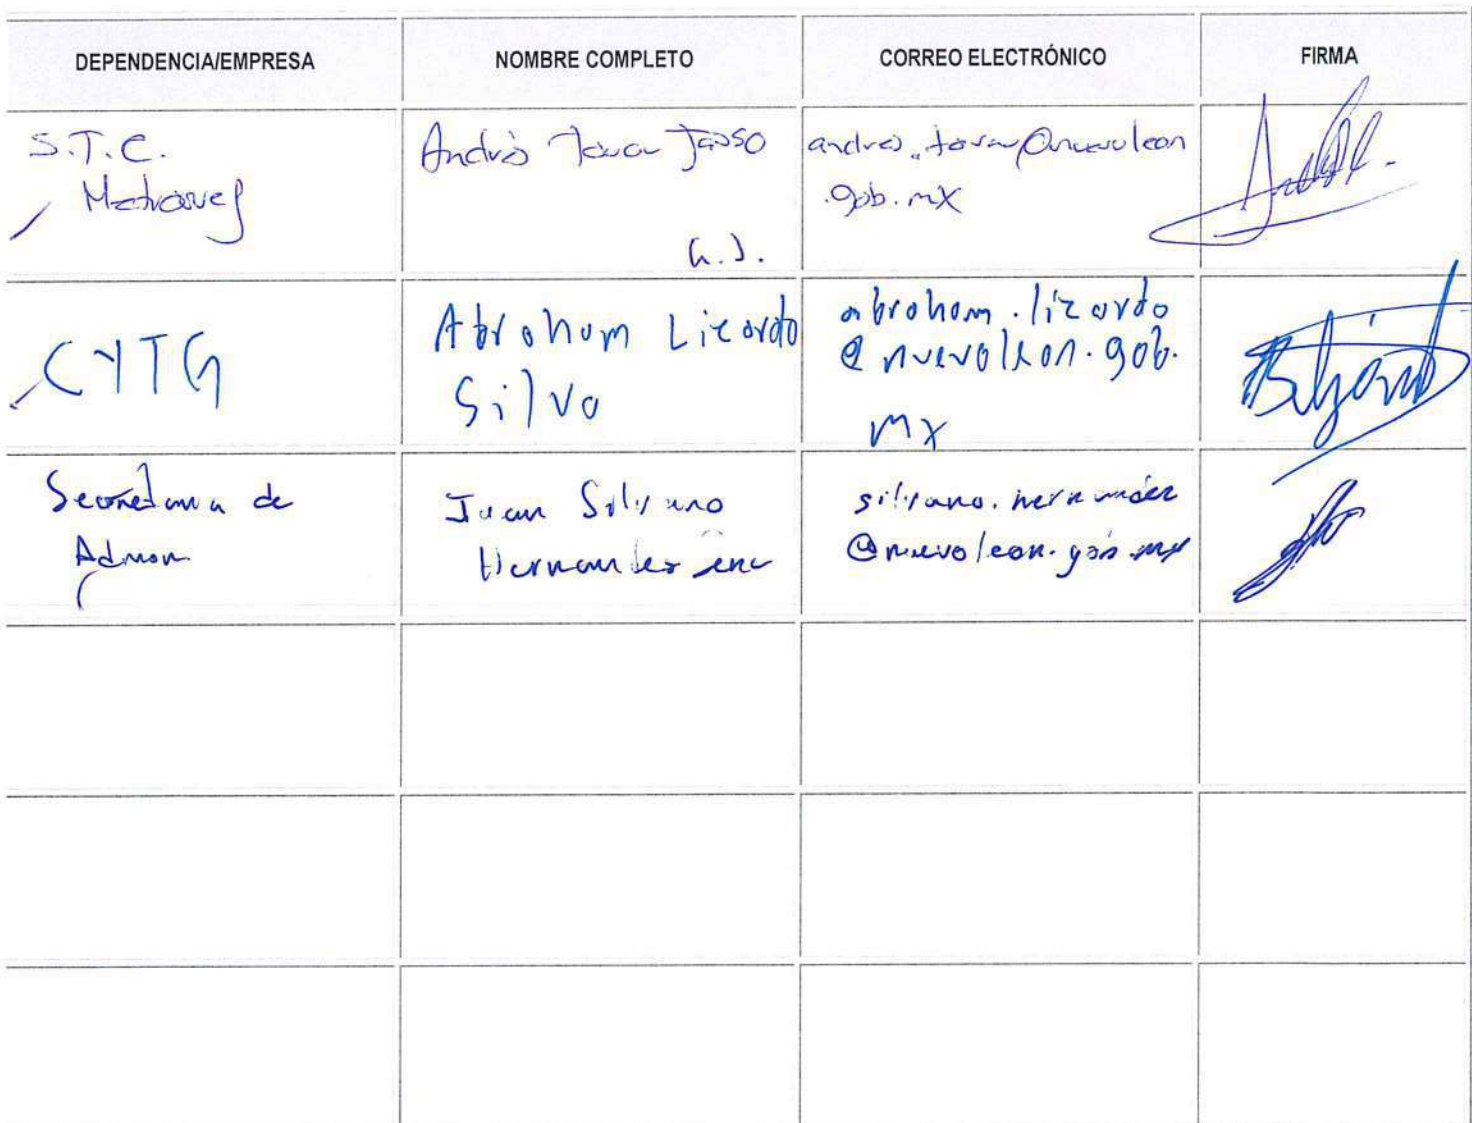 DEPENDENCIA/EMPRESA NOMBRE COMPLETO CORREO ELECTRÓNICO FIRMA
S.T.C.
Metrorrey
Andrés Tovar Jasso
andres.tovar@nuevoleon
.gob.mx
CYTG
Abraham Lizardo
Silva
abraham.lizardo
@nuevoleon.gob.
mx
Secretaria de
Admon
Juan Silvano
Hernandez
silvano.hernandez
@nuevoleon.gob.mx